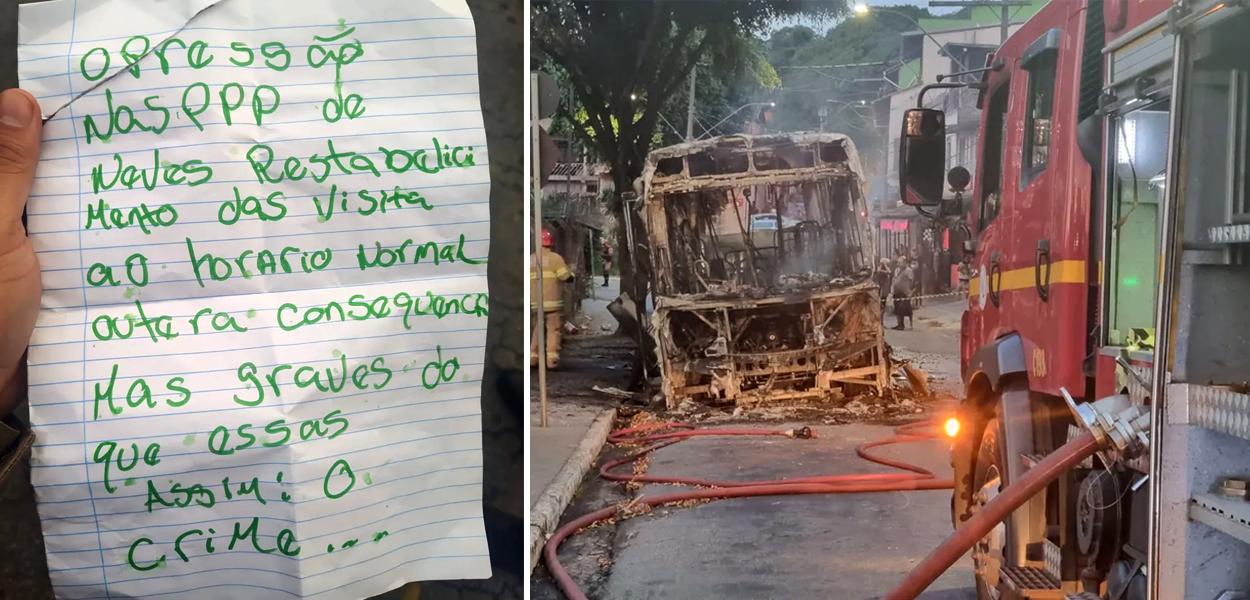 OPressão
Nas PPP de
Neves Restabalici
Mento das Visita
aO horArio NorMaL
outara consequencia
Mas graves do
que essas
AssiM: O
CriMe...